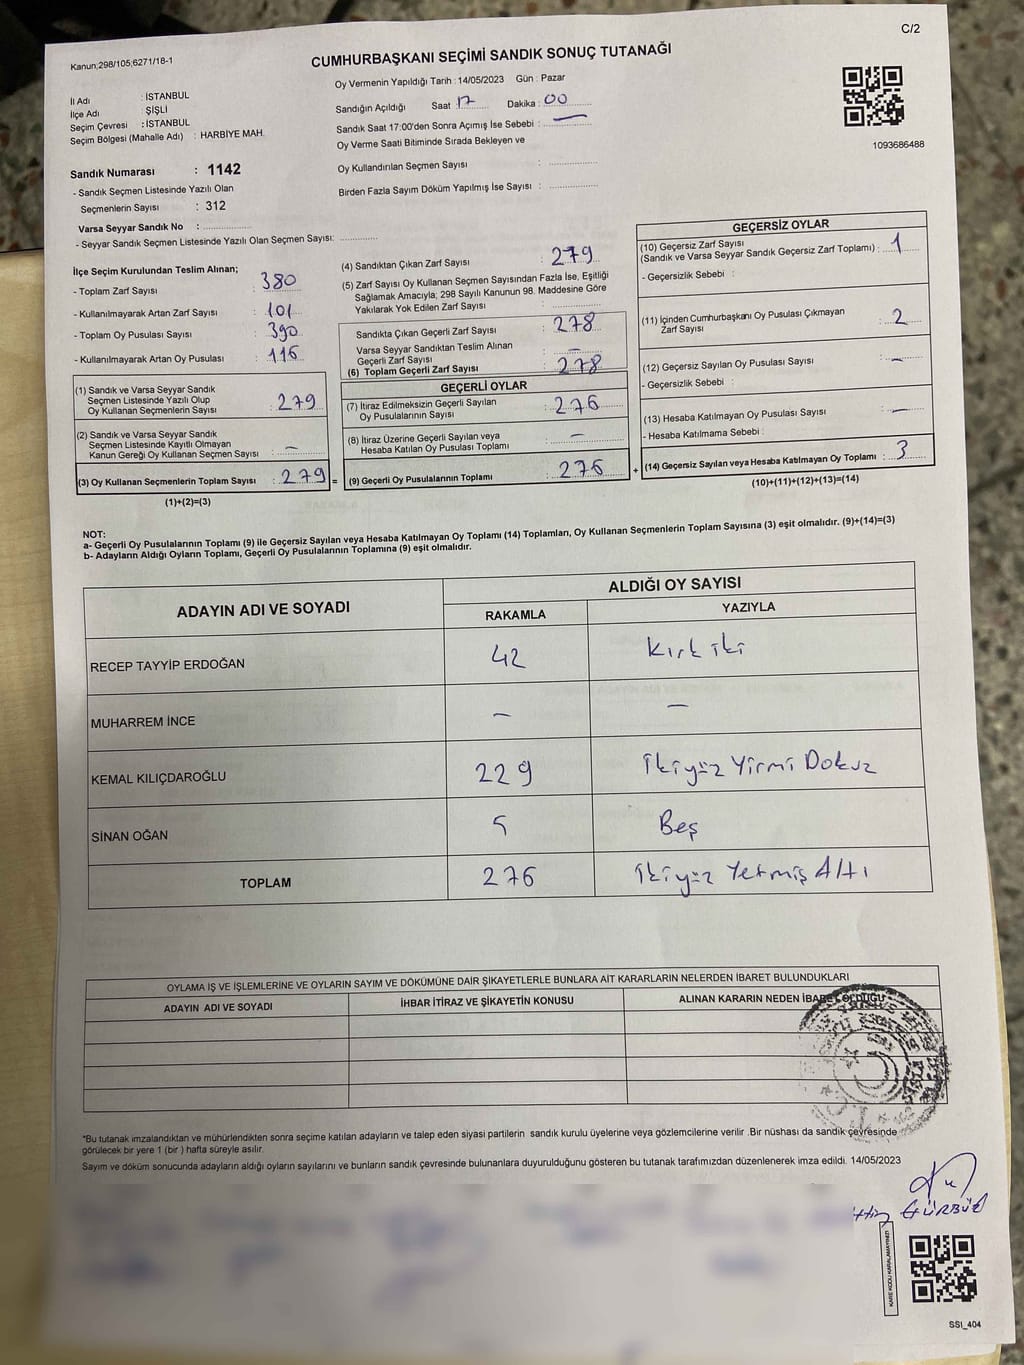 C/2
Kanun;298/105;6271/18-1
CUMHURBAŞKANI SEÇİMİ SANDIK SONUÇ TUTANAĞI
Oy Vermenin Yapıldığı Tarih : 14/05/2023 Gün : Pazar
İl Adı : İSTANBUL
İlçe Adı : ŞİŞLİ
Seçim Çevresi : İSTANBUL
Seçim Bölgesi (Mahalle Adı) : HARBİYE MAH.
Sandığın Açıldığı Saat 17 Dakika : 00
Sandık Saat 17:00'den Sonra Açımış İse Sebebi : —
Oy Verme Saati Bitiminde Sırada Bekleyen ve
Oy Kullandırılan Seçmen Sayısı :
Birden Fazla Sayım Döküm Yapılmış İse Sayısı :
1093686488
Sandık Numarası : 1142
- Sandık Seçmen Listesinde Yazılı Olan
Seçmenlerin Sayısı : 312
Varsa Seyyar Sandık No :
- Seyyar Sandık Seçmen Listesinde Yazılı Olan Seçmen Sayısı:
İlçe Seçim Kurulundan Teslim Alınan;
- Toplam Zarf Sayısı : 380
- Kullanılmayarak Artan Zarf Sayısı : 101
- Toplam Oy Pusulası Sayısı : 390
- Kullanılmayarak Artan Oy Pusulası : 115
(1) Sandık ve Varsa Seyyar Sandık
Seçmen Listesinde Yazılı Olup
Oy Kullanan Seçmenlerin Sayısı : 279
(2) Sandık ve Varsa Seyyar Sandık
Seçmen Listesinde Kayıtlı Olmayan
Kanun Gereği Oy Kullanan Seçmen Sayısı : —
(3) Oy Kullanan Seçmenlerin Toplam Sayısı : 279 =
(1)+(2)=(3)
(4) Sandıktan Çıkan Zarf Sayısı : 279
(5) Zarf Sayısı Oy Kullanan Seçmen Sayısından Fazla İse, Eşitliği
Sağlamak Amacıyla; 298 Sayılı Kanunun 98. Maddesine Göre
Yakılarak Yok Edilen Zarf Sayısı :
Sandıkta Çıkan Geçerli Zarf Sayısı : 278
Varsa Seyyar Sandıktan Teslim Alınan
Geçerli Zarf Sayısı : —
(6) Toplam Geçerli Zarf Sayısı : 278
GEÇERLİ OYLAR
(7) İtiraz Edilmeksizin Geçerli Sayılan
Oy Pusulalarının Sayısı : 276
(8) İtiraz Üzerine Geçerli Sayılan veya
Hesaba Katılan Oy Pusulası Toplamı : —
(9) Geçerli Oy Pusulalarının Toplamı : 276 +
GEÇERSİZ OYLAR
(10) Geçersiz Zarf Sayısı
(Sandık ve Varsa Seyyar Sandık Geçersiz Zarf Toplamı) : 1
- Geçersizlik Sebebi :
(11) İçinden Cumhurbaşkanı Oy Pusulası Çıkmayan
Zarf Sayısı : 2
(12) Geçersiz Sayılan Oy Pusulası Sayısı : —
- Geçersizlik Sebebi :
(13) Hesaba Katılmayan Oy Pusulası Sayısı : —
- Hesaba Katılmama Sebebi :
(14) Geçersiz Sayılan veya Hesaba Katılmayan Oy Toplamı : 3
(10)+(11)+(12)+(13)=(14)
NOT:
a- Geçerli Oy Pusulalarının Toplamı (9) ile Geçersiz Sayılan veya Hesaba Katılmayan Oy Toplamı (14) Toplamları, Oy Kullanan Seçmenlerin Toplam Sayısına (3) eşit olmalıdır. (9)+(14)=(3)
b- Adayların Aldığı Oyların Toplamı, Geçerli Oy Pusulalarının Toplamına (9) eşit olmalıdır.
ADAYIN ADI VE SOYADI ALDIĞI OY SAYISI
RAKAMLA YAZIYLA
RECEP TAYYİP ERDOĞAN 42 Kırk iki
MUHARREM İNCE — —
KEMAL KILIÇDAROĞLU 229 İkiyüz Yirmi Dokuz
SİNAN OĞAN 5 Beş
TOPLAM 276 İkiyüz Yetmiş Altı
OYLAMA İŞ VE İŞLEMLERİNE VE OYLARIN SAYIM VE DÖKÜMÜNE DAİR ŞİKAYETLERLE BUNLARA AİT KARARLARIN NELERDEN İBARET BULUNDUKLARI
ADAYIN ADI VE SOYADI İHBAR İTİRAZ VE ŞİKAYETİN KONUSU ALINAN KARARIN NEDEN İBARET OLDUĞU
*Bu tutanak imzalandıktan ve mühürlendikten sonra seçime katılan adayların ve talep eden siyasi partilerin sandık kurulu üyelerine veya gözlemcilerine verilir .Bir nüshası da sandık çevresinde
görülecek bir yere 1 (bir ) hafta süreyle asılır.
Sayım ve döküm sonucunda adayların aldığı oyların sayılarını ve bunların sandık çevresinde bulunanlara duyurulduğunu gösteren bu tutanak tarafımızdan düzenlenerek imza edildi. 14/05/2023
GÜRBÜZ
KARE KODU KARALAMAYINIZ!
SSI_404